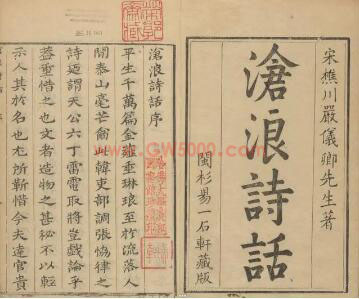 宋樵川嚴儀卿先生著
滄浪詩話
閩杉易一石軒藏版
滄浪詩話序
平生千萬篇金薤垂琳琅至於流落人
間泰山毫芒爾此韓吏部調張協律之
詩迺謂天公六丁雷電取將豈戲論乎
蓋重惜之也文者造物之甚秘不以輕
示人其於名也尤所靳惜今夫達官貴
www.GW5000.com